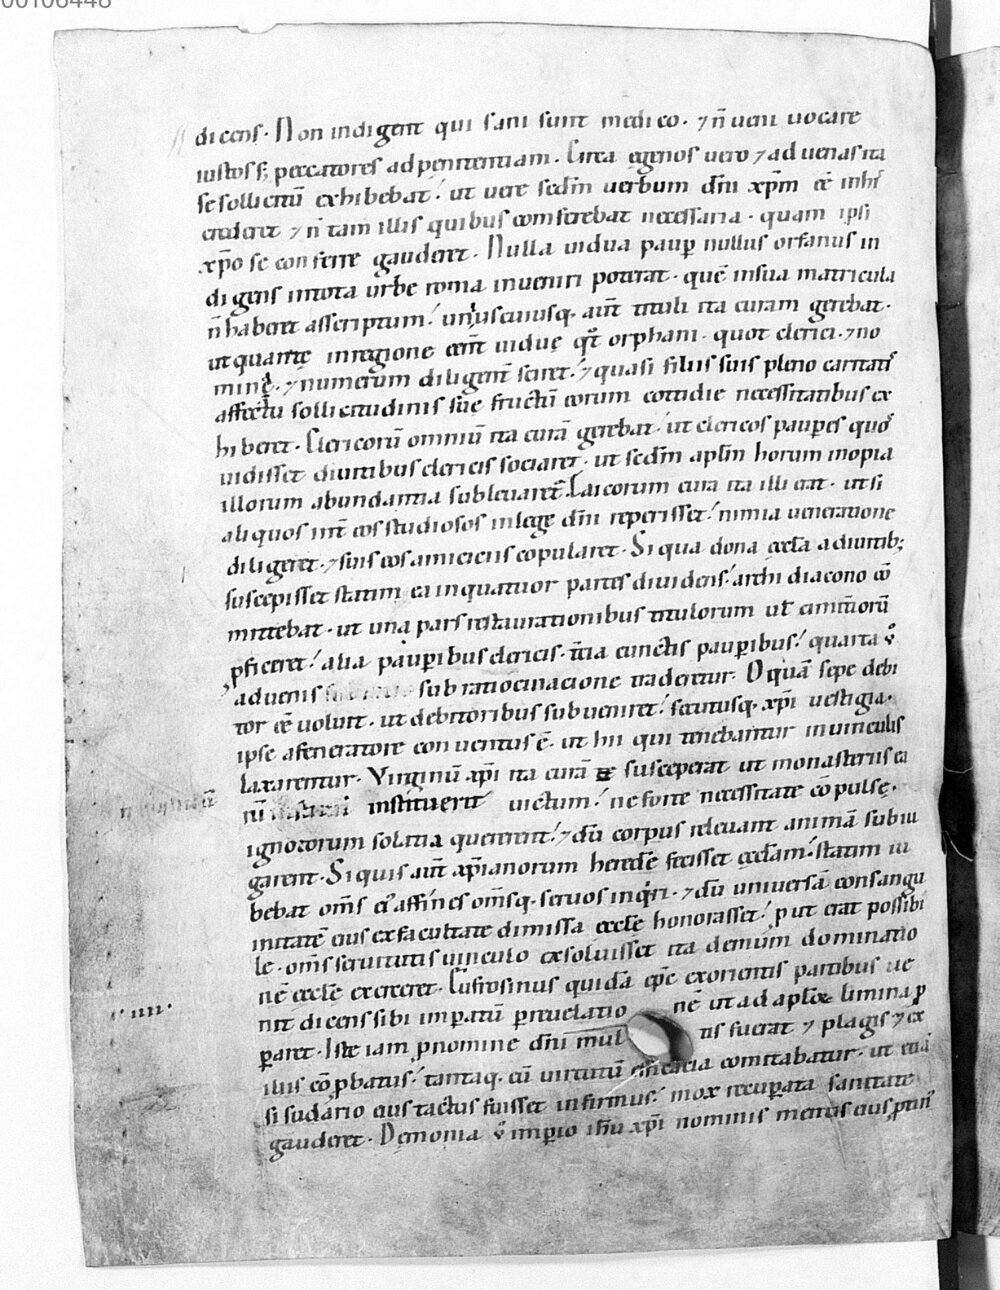 00106448
dicens. Non indigent qui sani sunt medico. ⁊ n̄ ueni uocare
iustos s; peccatores ad penitentiam. Circa egenos uero ⁊ aduenas ita
se sollicitū exhibebat. ut uere sedm̄ uerbum dn̄i xp̄m ēē in his
crederet ⁊ n̄ tam illis quibus conferebat necessaria. quam ipsi
xp̄o se conferre gauderet. Nulla uidua paup̱ nullus orfanus in
digens in tota urbe roma inueniri poterat. quē in sua matricula
n̄ haberet asscriptum. uniuscuiusq. aut̄ tituli ita curam gerebat.
ut quante in regione eēnt uiduę qt̄ orphani. quot clerici. ⁊ no
mine. ⁊ numerum diligent̄ sciret. ⁊ quasi filiis suis pleno caritatis
affectu sollicitudinis sue fructū eorum cottidie necessitatibus ex
hiberet. Clericorū omniū ita curā gerebat. ut clericos paupes quos
uidisset diuitibus clericis sociaret. ut sedm̄ aplm̄ horum inopia
illorum abundantia subleuaret. Laicorum cura ita illi erat. ut si
aliquos int̄ eos studiosos in lege dn̄i reperisset. nimia ueneratione
diligeret. ⁊ suis eos amiciciis copularet. Si qua dona ęccla a diuitib;
suscepisset statim ea in quatuor partes diuidens. archidiacono cō
mittebat. ut una pars restaurationibus titulorum ut̄ cimitiorū
pficeret. alia paup̱ibus clericis. tcia cunctis paup̱ibus. quarta ů
aduenis sub ratiocinacione traderetur. O quā sepe debi
tor ēē uoluit. ut debitoribus subueniret. secutusq. xp̄i uestigia.
ipse a feneratore conuentus ē. ut hii qui tenebantur in uinculis
laxarentur. Virginū xp̄i ita curā susceperat ut monasteriis ea
rū instituerit uictum. ne forte necessitate cōpulsę.
ignotorum solatia quererent. ⁊ dū corpus releuant animā subiu
garent. Si quis aut̄ xp̄ianorum heredē fecisset ęcclam. statim iu
bebat om̄s ei affines om̄sq. seruos inqri. ⁊ dū uniuersā consangu
initatē eius ex facultate dimissa ęccle honorasset. p ut erat possibi
le. om̄s seruitutis uinculo exsoluisset ita demum dominatio
nē ęccle exerceret. Eufrosinus quidā epc̄ ex orientis partibus ue
nit dicens sibi imp̱atū p̱ reuelatio nē ut ad aplōr limina p
p̱aret. Iste iam p nomine dn̄i mul tis fuerat ⁊ plagis ⁊ ex
iliis cōpbatus. tantaq. eū uirtutū efficacia comitabatur. ut etiā
si sudario eius tactus fuisset infirmus. mox recup̱ata sanitate
gauderet. Demonia ů imp̱io ih̄u xp̄i nominis meritis eius ptin̄